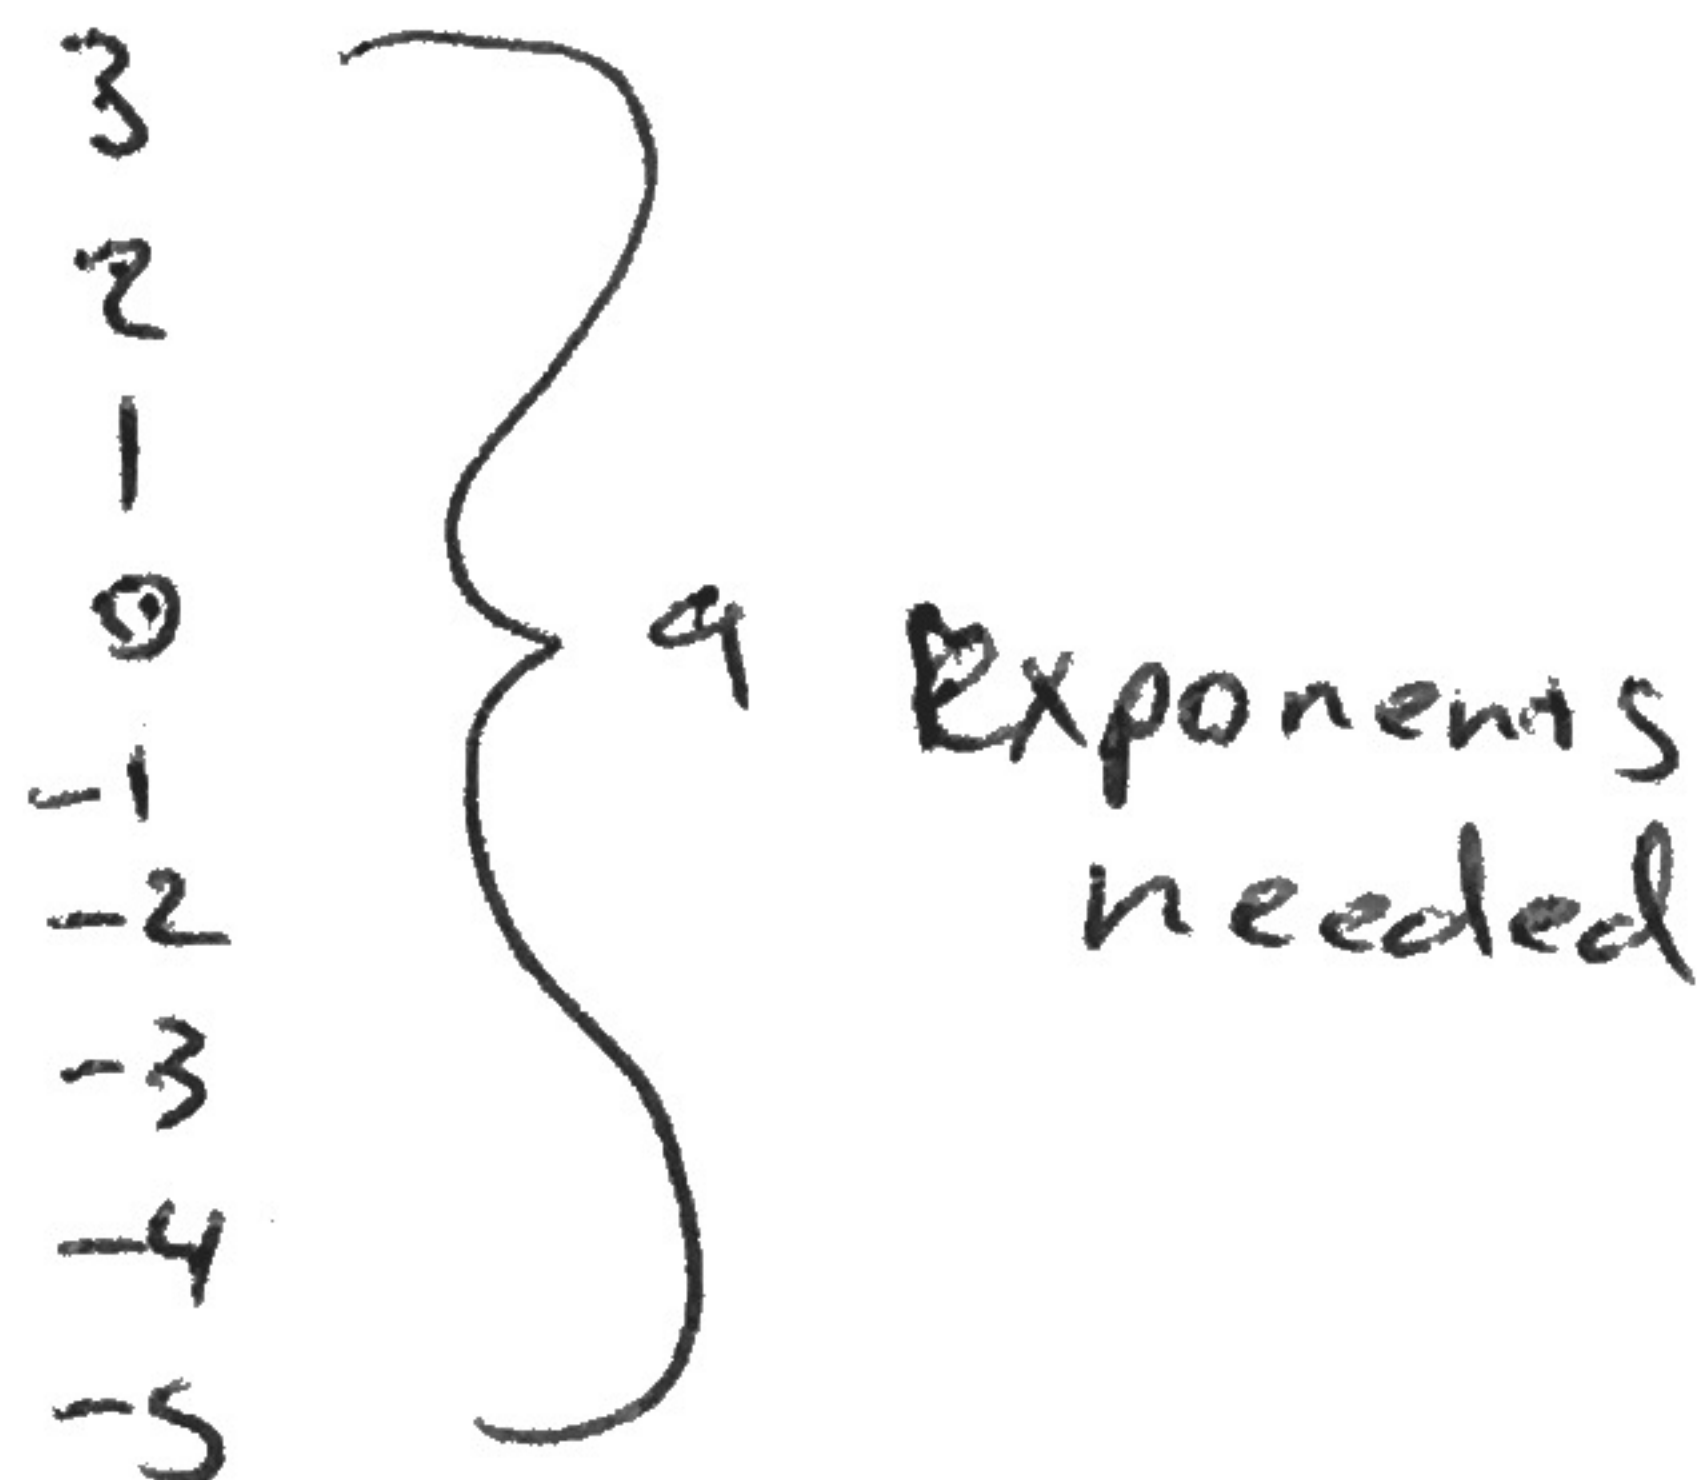 3
2
1
0
-1
-2
-3
-4
-5
9 Exponents
needed